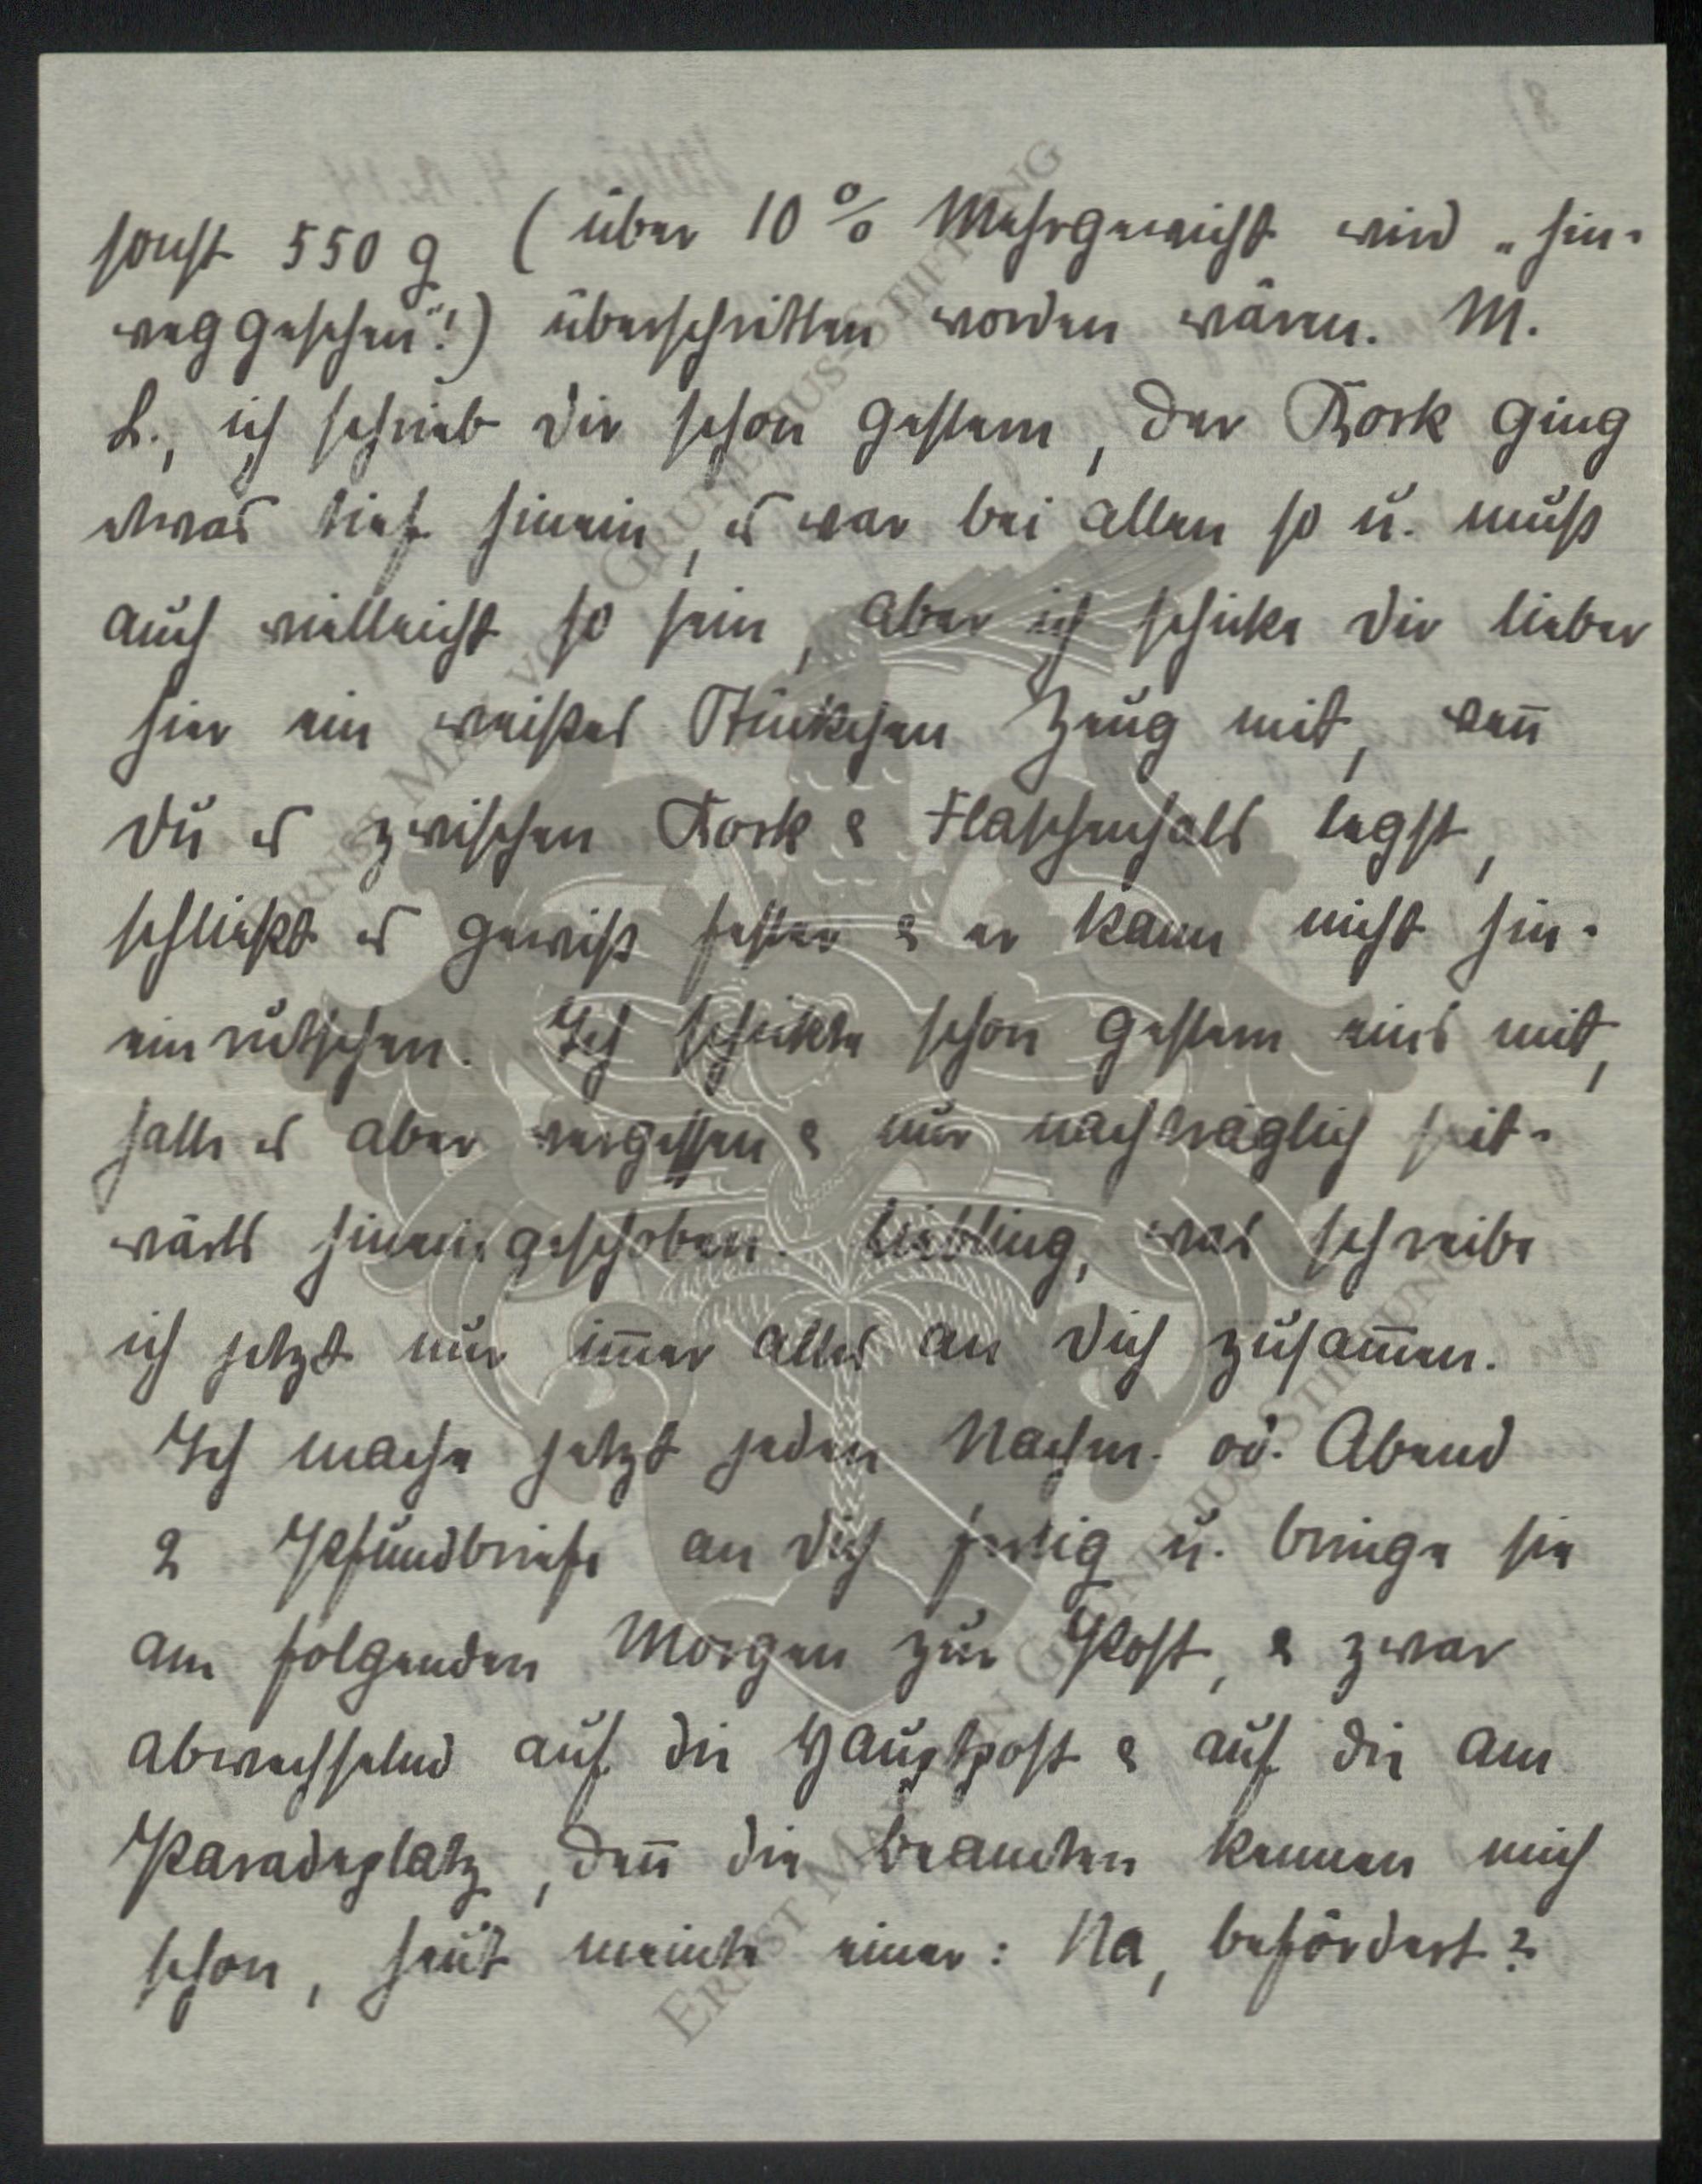 sonst 550 g (über 10 % Mehrgewicht wird „hin-
weggesehen"!) überschritten worden wären. M.
L., ich schrieb dir schon gestern, der Kork ging
etwas tief hinein, es war bei allen so u. muß
auch vielleicht so sein, aber ich schicke dir lieber
hier ein weißes Stückchen Zeug mit, weñ
du es zwischen Kork & Flaschenhals legst,
schließt es gewiß fester & er kann nicht hin-
einrutschen. Ich schickte schon gestern eins mit,
hatte es aber vergessen & nur nachträglich seit-
wärts hineingeschoben. Liebling, was schreibe
ich jetzt nur im̄er alles an dich zusam̄en.
Ich mache jetzt jeden Nachm. od. Abend
2 Pfundbriefe an dich fertig u. bringe sie
am folgenden Morgen zur Post, & zwar
abwechselnd auf die Hauptpost & auf die am
Paradeplatz, deñ die Beamten kennen mich
schon, heut meinte einer: Na, befördert?
ERNST MAX VON GRUNELIUS-STIFTUNG
ERNST MAX VON GRUNELIUS-STIFTUNG